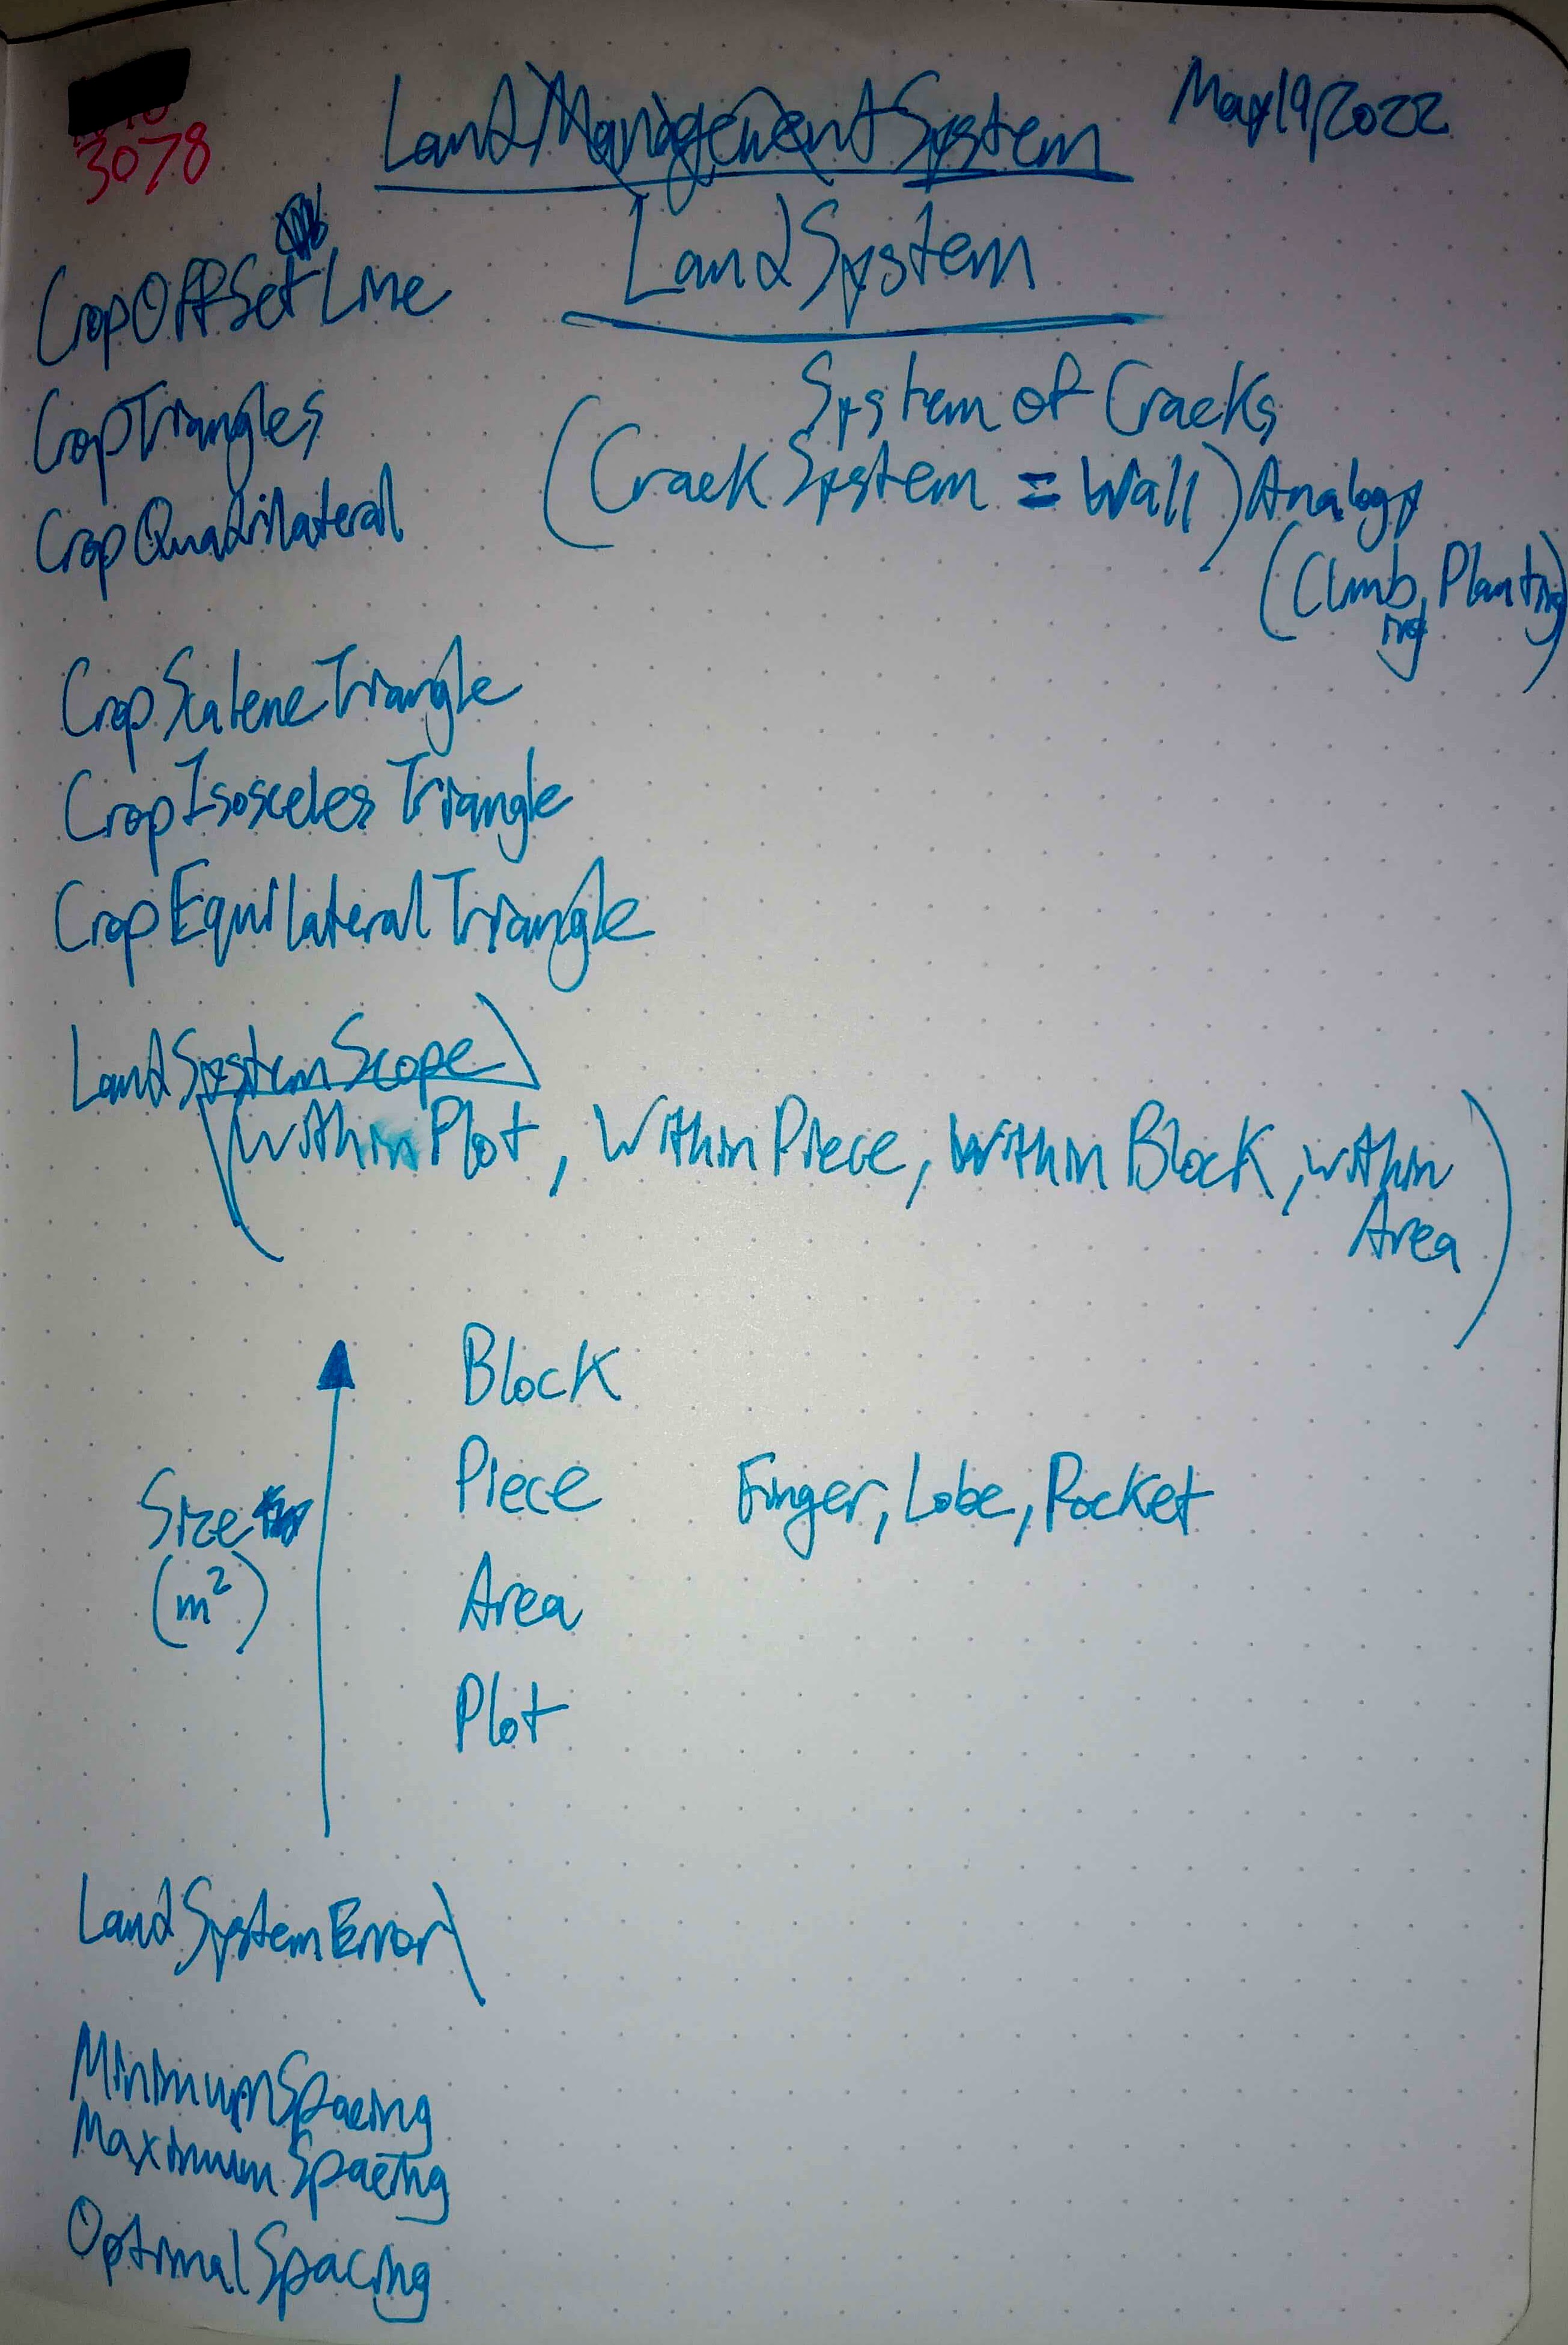 3078
Land Management System
May 19/2022
Land System
CropOffSetLine
CropTriangles
CropQuadrilateral
System of Cracks
(Crack System = Wall) Analogy
(Climbing, Planting)
CropScaleneTriangle
CropIsoscelesTriangle
CropEquilateralTriangle
LandSystemScope
(WithinPlot, WithinPiece, WithinBlock, within
Area)
Block
Piece Finger, Lobe, Pocket
Size
(m²)
Area
Plot
LandSystemError
MinimumSpacing
MaximumSpacing
OptimalSpacing